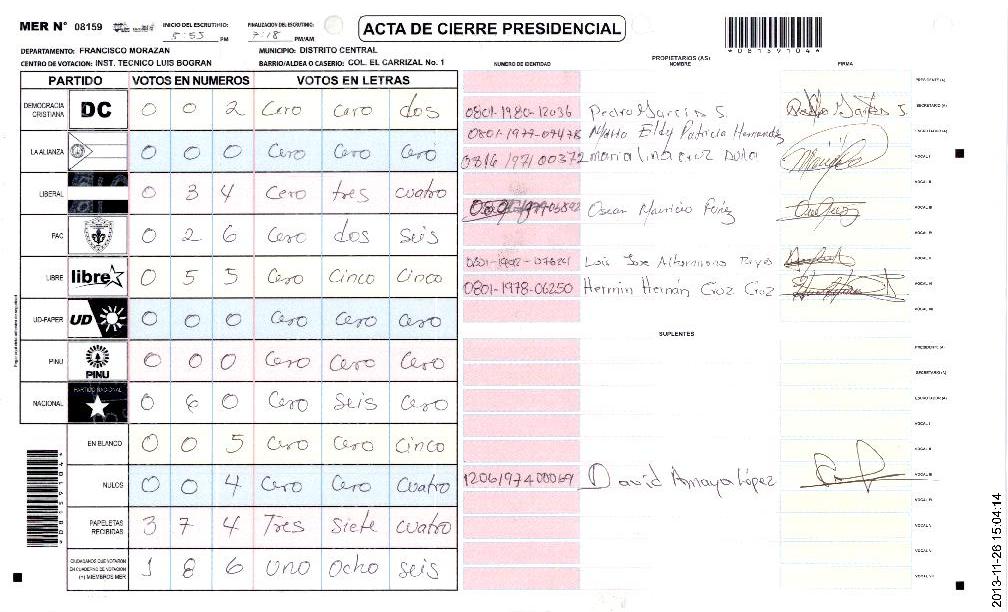 MER N° 08159 INICIO DEL ESCRUTINIO: 5:53 PM FINALIZACION DEL ESCRUTINIO: 7:18 PM/AM ACTA DE CIERRE PRESIDENCIAL
DEPARTAMENTO: FRANCISCO MORAZAN MUNICIPIO: DISTRITO CENTRAL
CENTRO DE VOTACION: INST. TECNICO LUIS BOGRAN BARRIO/ALDEA O CASERIO: COL. EL CARRIZAL No. 1
*08159104*
NUMERO DE IDENTIDAD PROPIETARIOS (AS) NOMBRE FIRMA
PARTIDO VOTOS EN NUMEROS VOTOS EN LETRAS
DEMOCRACIA CRISTIANA DC 0 0 2 Cero Cero dos
LA ALIANZA 0 0 0 Cero Cero Cero
LIBERAL 0 3 4 Cero tres cuatro
PAC 0 2 6 Cero dos seis
LIBRE libre 0 5 5 Cero Cinco Cinco
UD-FAPER UD 0 0 0 Cero Cero Cero
PINU PINU 0 0 0 Cero Cero Cero
NACIONAL PARTIDO NACIONAL 0 6 0 Cero Seis Cero
EN BLANCO 0 0 5 Cero Cero Cinco
NULOS 0 0 4 Cero Cero Cuatro
PAPELETAS RECIBIDAS 3 7 4 Tres Siete cuatro
CIUDADANOS QUE VOTARON EN CUADERNO DE VOTACION (+) MIEMBROS MER 1 8 6 uno ocho seis
*08159104*
PRESIDENTE (A)
0801-1980-12036 Pedro Garcia S. SECRETARIO (A)
0801-1977-07478 Eldy Patricia Hernandez ESCRUTADOR (A)
0816 1971 00372 maria lina cruz VOCAL I
VOCAL II
Oscar Mauricio VOCAL III
VOCAL IV
Luis Jose VOCAL V
0801-1978-06250 Hermin Hernán Croz Croz VOCAL VI
VOCAL VII
SUPLENTES
PRESIDENTE (A)
SECRETARIO (A)
ESCRUTADOR (A)
VOCAL I
VOCAL II
1206197400069 David Amaya López VOCAL III
VOCAL IV
VOCAL V
VOCAL VI
VOCAL VII
2013-11-26 15:04:14